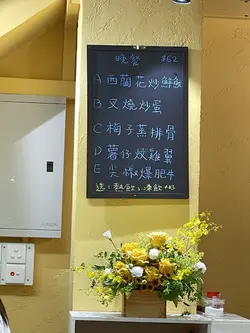 晚餐 $62
A 西蘭花炒鮮魷
B 叉燒炒蛋
C 梅子蒸排骨
D 薯仔炆雞翼
E 尖椒爆肥牛
送:熱飲,凍飲+$3